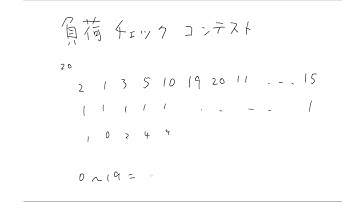 負荷チェック コンテスト
20
2 1 3 5 10 19 20 11 ‥‥ 15
1 1 1 1 1 ‥ ‥ 1
1 0 2 4 4
0～19 =